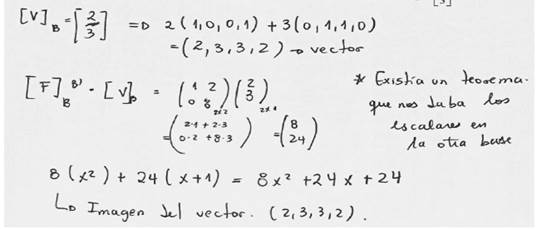 [V]_B = [2 3] => 2(1,0,0,1) + 3(0,1,1,0)
= (2,3,3,2) → vector
[F]_B^B' · [V]_B = (1 2 0 8)_2x2 (2 3)_2x1
= (2·1 + 2·3 0·2 + 8·3) = (8 24)
* Existia un teorema
que nos daba los
escalares en
la otra base
8(x²) + 24(x+1) = 8x² + 24x + 24
↳ Imagen del vector. (2,3,3,2).